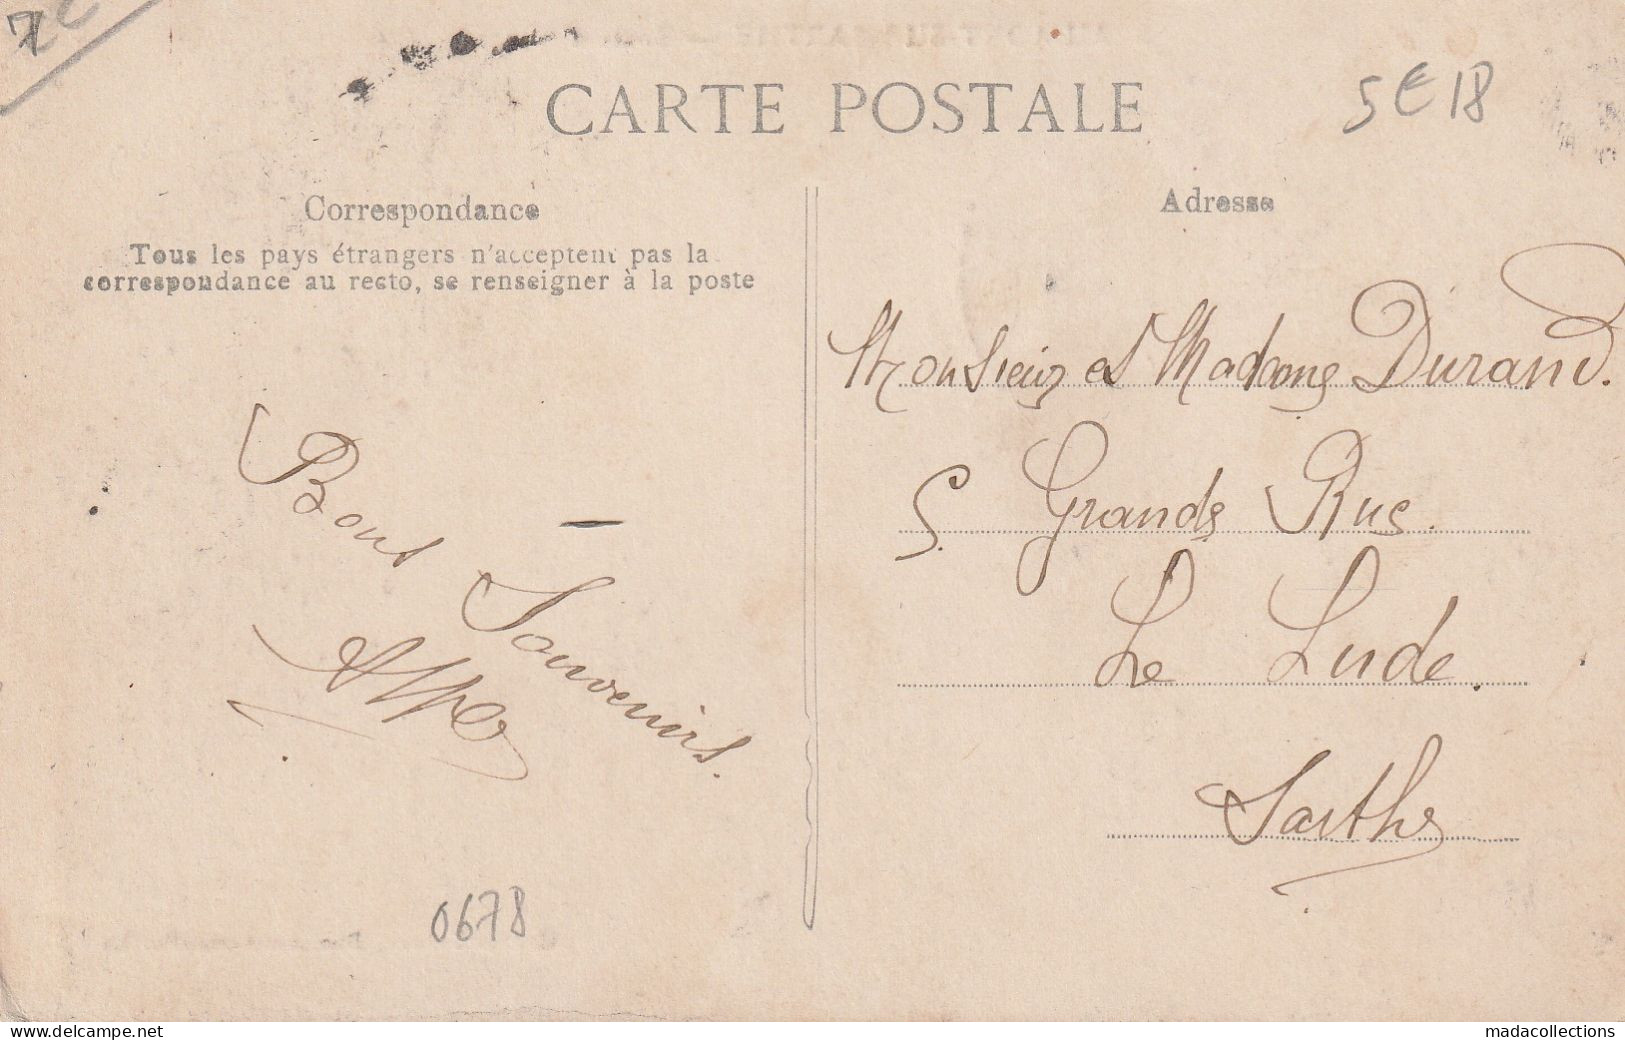 CARTE POSTALE
5€18
Correspondance
Tous les pays étrangers n'acceptent pas la
correspondance au recto, se renseigner à la poste
Bons
Souvenirs.
0678
Adresse
Monsieur et Madame Durand.
5. Grande Rue.
Le Lude.
Sarthe
www.delcampe.net
madacollections